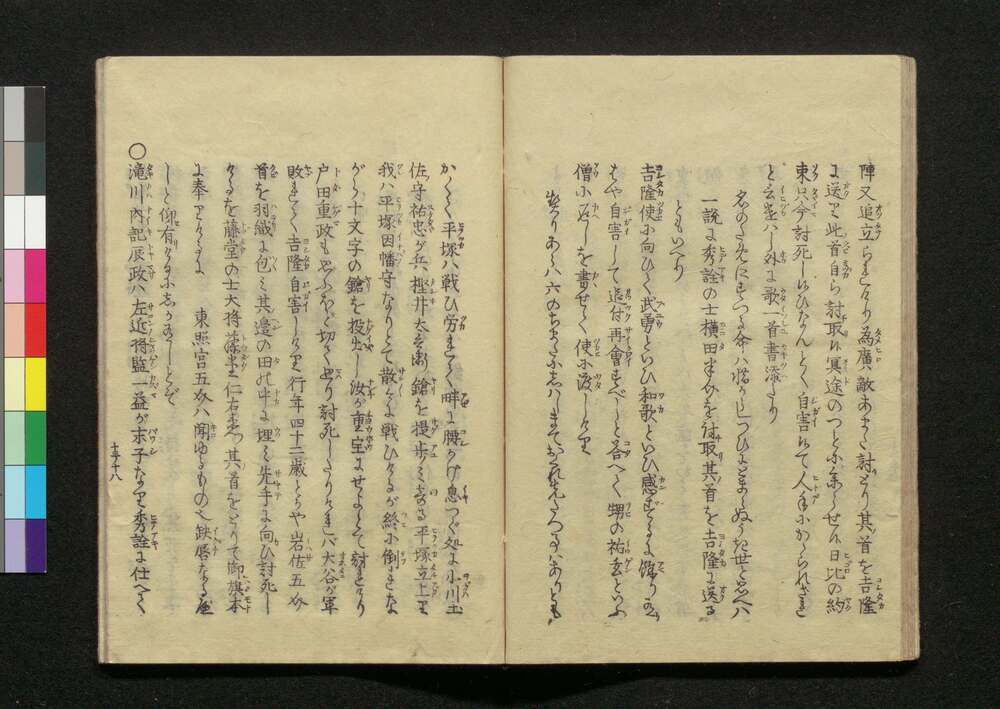 陣又追立られたり為廣敵あまた討とり其首を吉隆
に送りて此首自ら討取ぬ冥途のつとに参らせ候日比の約
束只今討死し候ひなんとく自害候て人手にかゝられざれ
と云送りし外に歌一首書添たり
名のためにすつる命は惜からじつひにとまらぬうき世と思へは
一説に秀詮の士横田半介を討取其首を吉隆に送る
ともいへり
吉隆使に向ひて武勇といひ和歌といひ感ずるに餘りあり
はや自害して追付再會すべしと答へて甥の祐玄といふ
僧に返しを書せて使に渡しけり
契りあらは六のちまたにしはしまておくれ先たつ事はありとも
かくて平塚は戦ひ労れて畔に腰かけ息つぐ処に小川土
佐守祐忠が兵樫井太兵衛鎗を提歩みよる平塚立上りて
我は平塚因幡守なりとて散々に戦ひけるが終に倒れな
がら十文字の鎗を投出し汝が重宝にせよとて討れたり
戸田重政もやぶれて切て廻り討死したりけれバ大谷が軍
敗れて吉隆自害しけり行年四十二歳とかや岩佐五介
首を羽織に包み其邊の田の中に埋み先手に向ひ討死し
けるを藤堂の士大将藤堂仁右衛門其首をとりて御旗本
に奉りけるに　東照宮五介は聞ゆるもの也缺唇なる
しと仰有けるにしかなりしとぞ
○滝川内記辰政は左近将監一益が末子なり秀詮に仕へて
十ノ十八